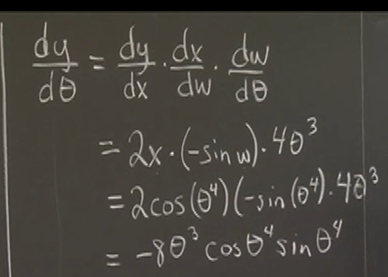 dy/dθ = dy/dx · dx/dw · dw/dθ
= 2x · (-sin w) · 4θ³
= 2cos(θ⁴)(-sin(θ⁴) · 4θ³
= -8θ³ cosθ⁴ sinθ⁴